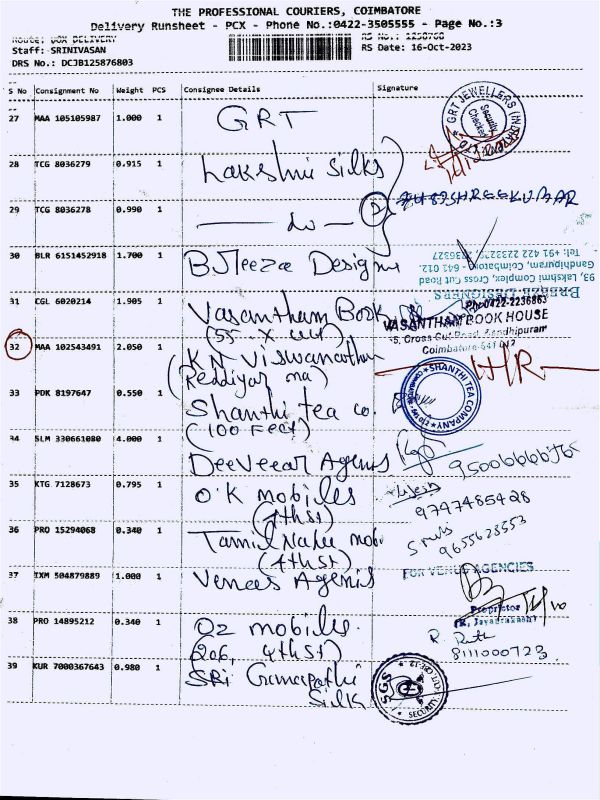 THE PROFESSIONAL COURIERS, COIMBATORE
Delivery Runsheet - PCX - Phone No.:0422-3505555 - Page No.:3
Route: DOX DELIVERY
RS No.: 1258768
Staff: SRINIVASAN
RS Date: 16-Oct-2023
DRS No.: DCJB125876803
S No Consignment No Weight PCS Consignee Details Signature
27 MAA 105105987 1.000 1 GRT
GRT JEWELLERS
Security
Checked
28 TCG 8036279 0.915 1 Lakshmi Silks
29 TCG 8036278 0.990 1 — do —
30 BLR 6151452918 1.700 1 BJleeze Designe
BREEZE DESIGNERS
93, Lakshmi Complex, Cross Cut Road
Gandhipuram, Coimbatore - 641 012.
Tel: +91 422
31 CGL 6020214 1.905 1 Vasantham Book
(55 X cut)
Ph:0422-2236863
VASANTHAM BOOK HOUSE
Cross Cut Road, Gandhipuram
Coimbatore-641 012
32 MAA 102543491 2.050 1 KN Viswanathan
(Reddiyar ma)
33 PDK 8197647 0.550 1 Shanthi tea co.
(100 Feet)
SHANTHI TEA COMPANY
34 SLM 330661080 4.000 1 DeeVeear Agenis
35 KTG 7128673 0.795 1 O'K mobiles
(7th st)
9797485428
36 PRO 15294068 0.340 1 Tamil Nadu mobi
(4th st)
9655628553
37 IXM 504879889 1.000 1 Venees Agenis
FOR VENUS AGENCIES
Proprietor
38 PRO 14895212 0.340 1 Oz mobiles.
(206, 4th st)
8111000723
39 KUR 7000367643 0.980 1 SRi Ganapathi
Silk
SGS
SECURITY